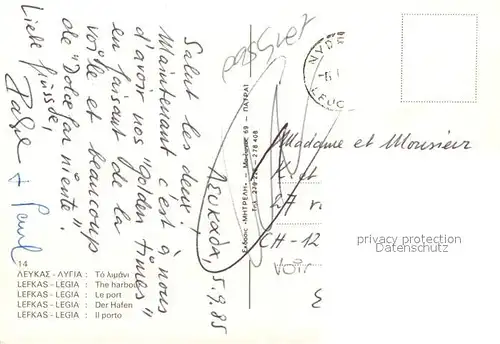 passnet
Λευκάδα, 5.9.85
Salut les deux,
Maintenant c'est à nous
d'avoir nos "golden times"
en faisant de la
voile et beaucoup
de "Dolce far niente".
Liebi Grüsse,
+ Paul
14
ΛΕΥΚΑΣ - ΛΥΓΙΑ : Τὸ λιμάνι
LEFKAS - LEGIA : The harbour
LEFKAS - LEGIA : Le port
LEFKAS - LEGIA : Der Hafen
LEFKAS - LEGIA : Il porto
Ἐκδόσεις «ΜΗΤΡΕΛΗ» 69 - ΠΑΤΡΑΙ
Τηλ. 278 408
LEUC
Madame et Monsieur
K. et
27 r
CH-12
privacy protection
Datenschutz